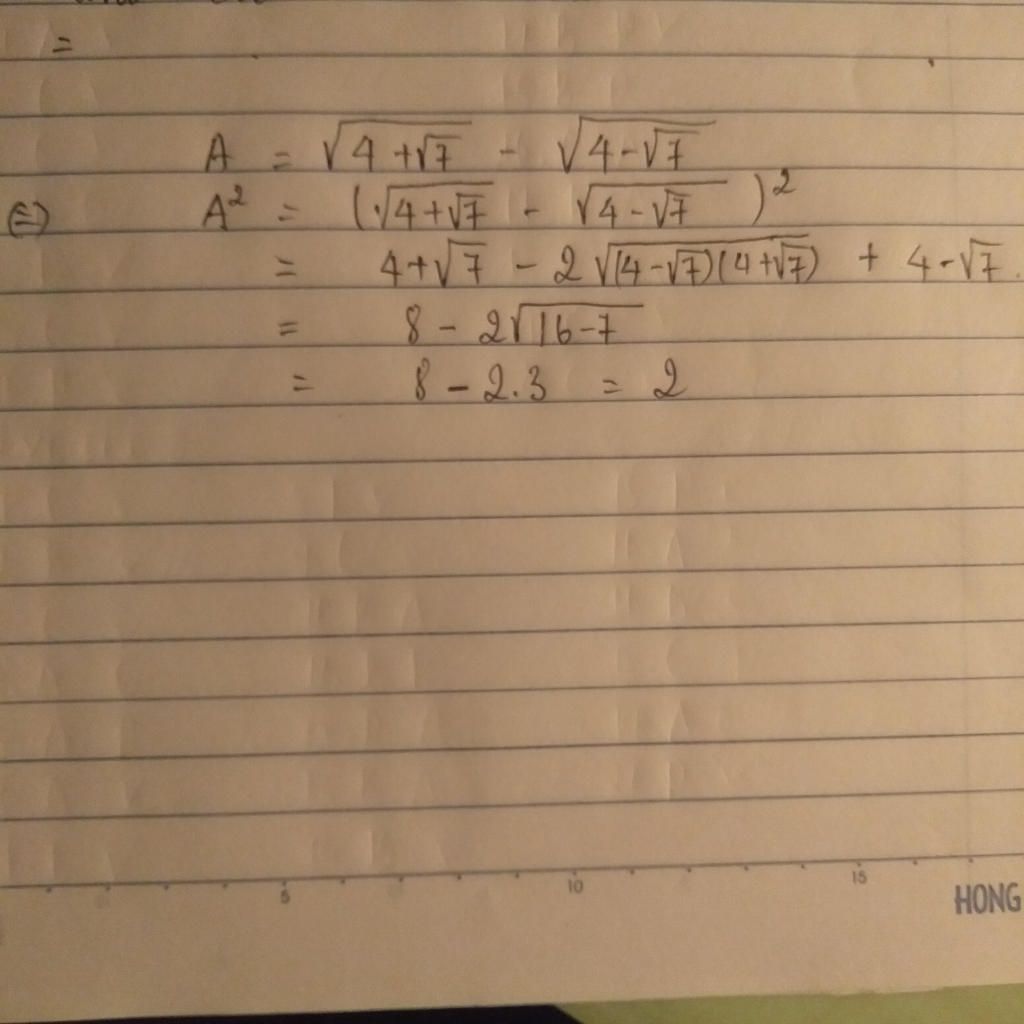 =
A = √(4+√7) - √(4-√7)
(=) A² = (√(4+√7) - √(4-√7))²
= 4+√7 - 2√((4-√7)(4+√7)) + 4-√7.
= 8 - 2√(16-7)
= 8 - 2.3 = 2
5 10 15
HONG